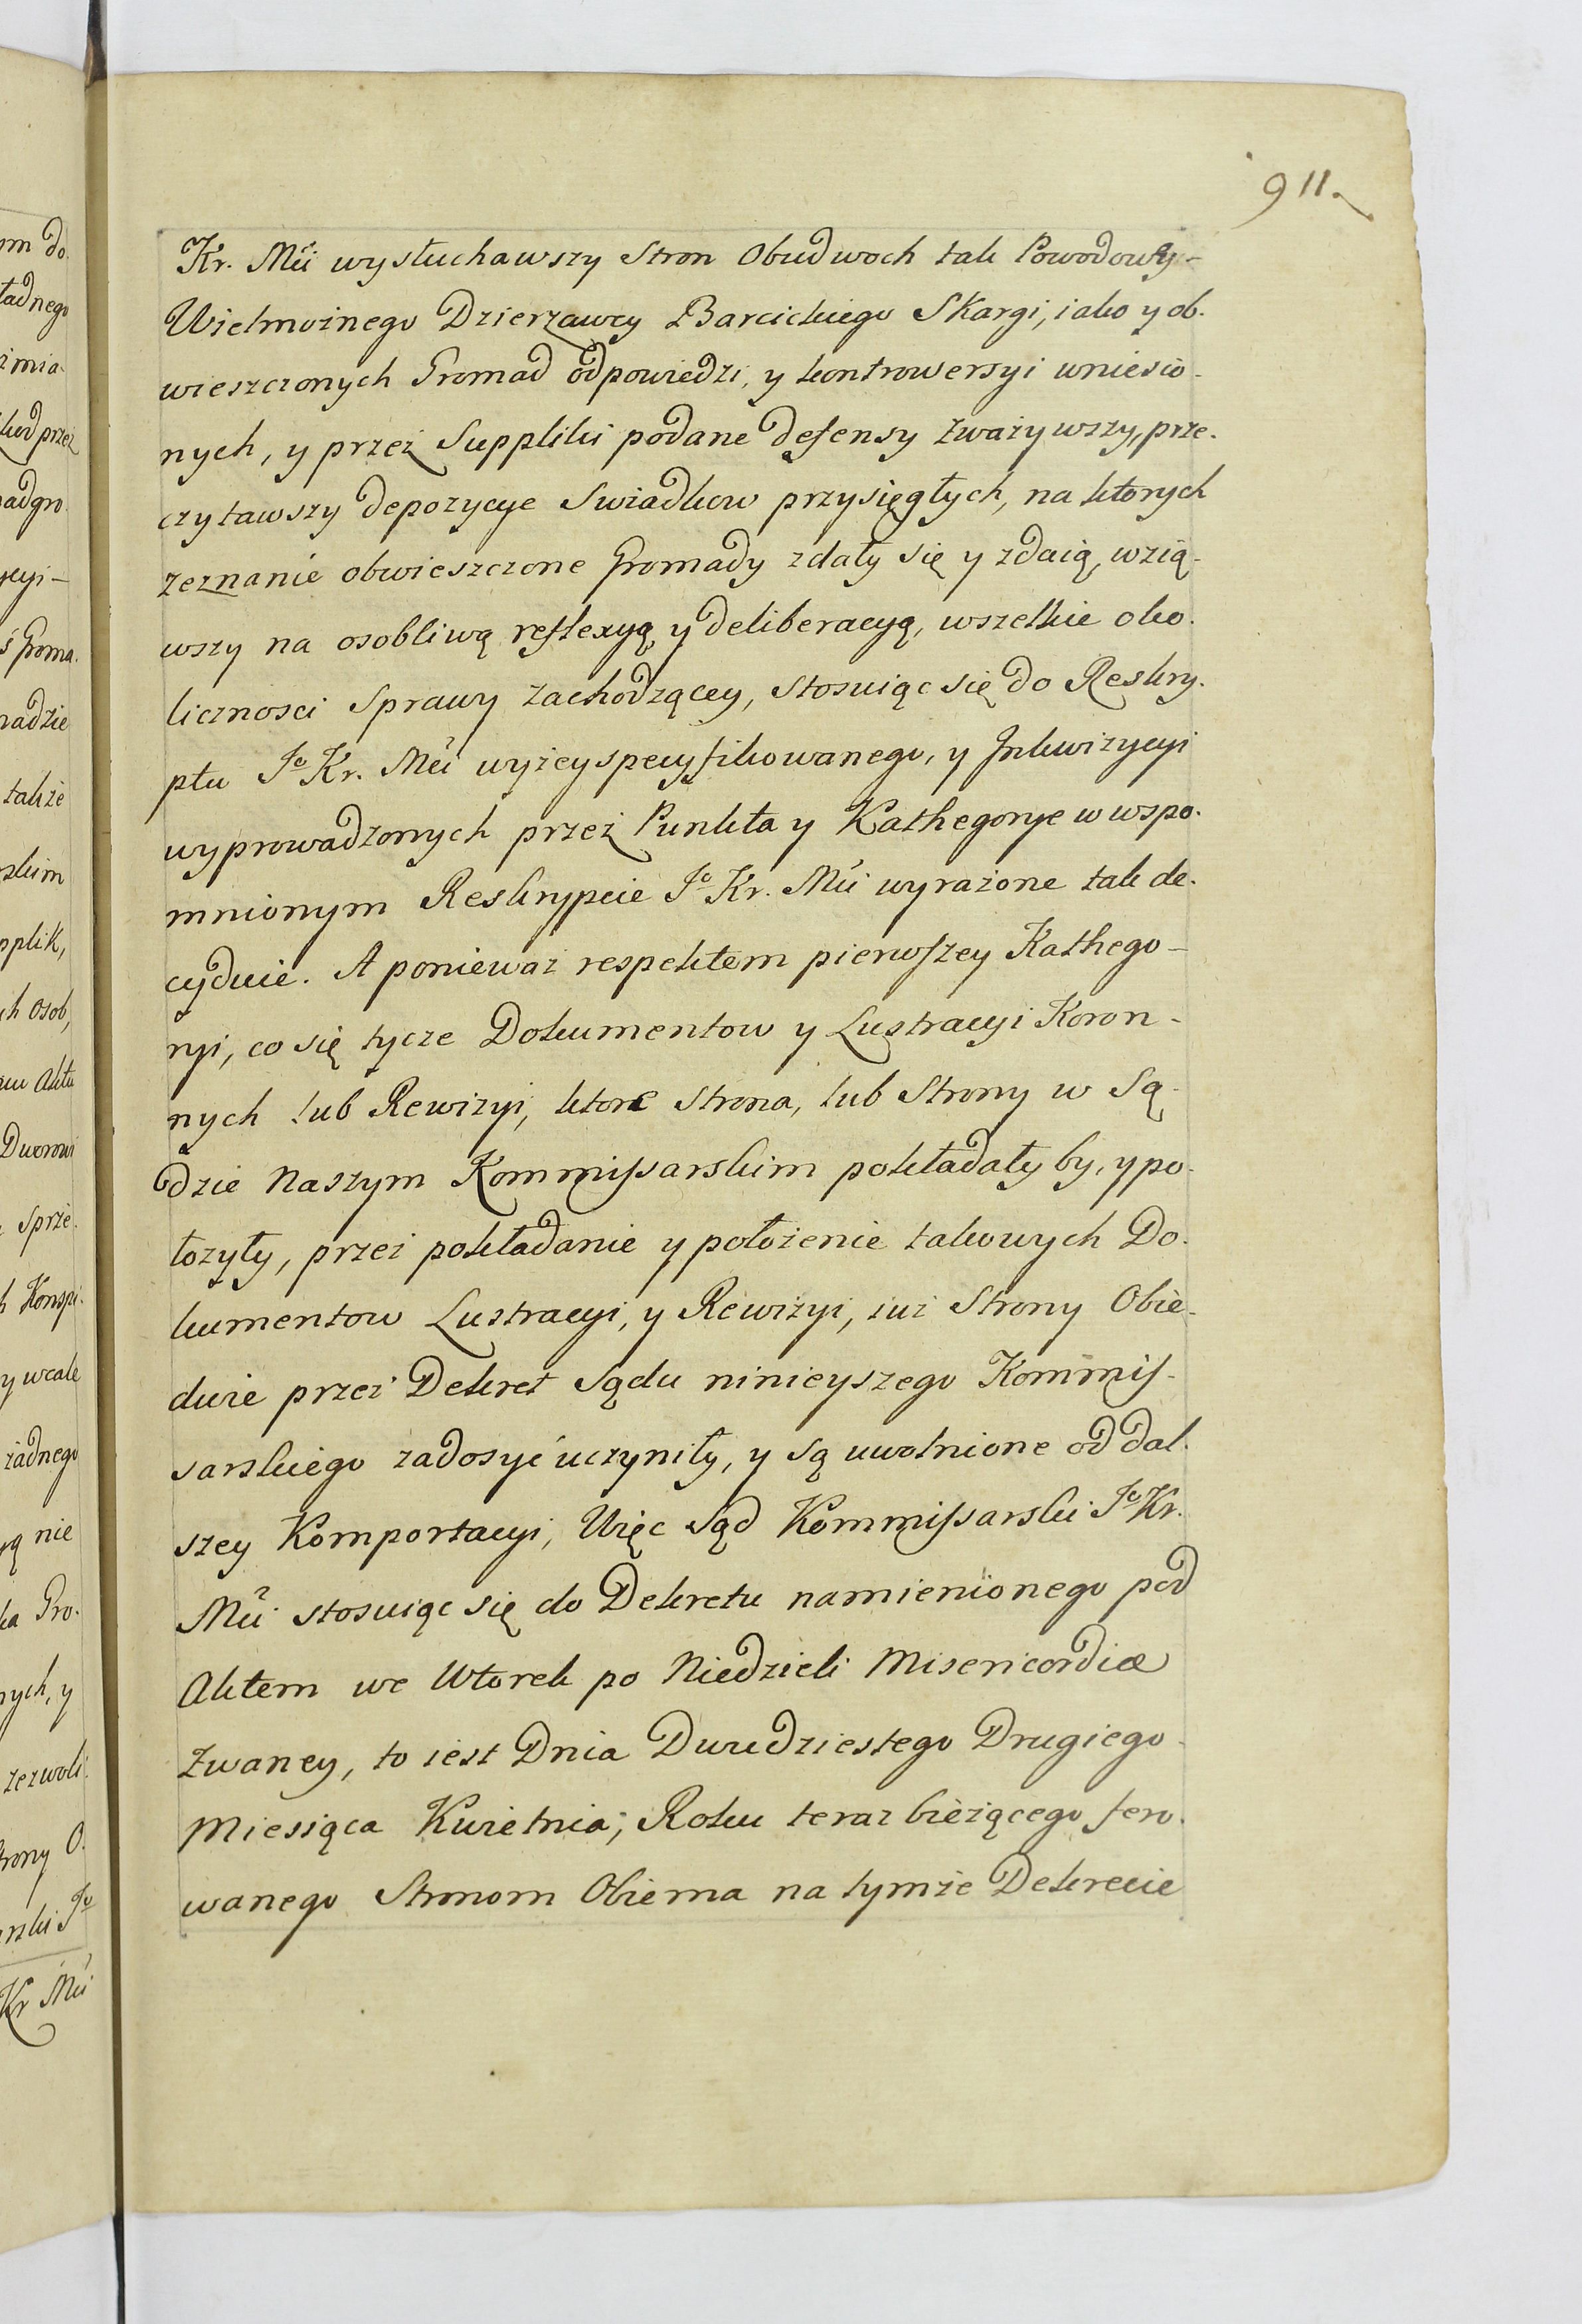 911.
Kr. Mci wysłuchawszy Stron Obudwoch tak Powodowy-
Wielmożnego Dzierzawcy Barcickiego Skargi, iako y ob-
wieszczonych Gromad odpowiedzi, y kontrowersyi wniesio-
nych, y przez Suppliki podane defensy zważywszy, prze-
czytawszy depozycye Swiadkow przysięgłych, na ktorych
zeznanie obwieszczone Gromady zdały się y zdaią, wzią-
wszy na osobliwą reflexyą y deliberacyą, wszelkie oko-
licznosci Sprawy zachodzącey, stosuiąc się do Reskry-
ptu Jo Kr. Mci wyżey specyfikowanego, y Inkwizycyi
wyprowadzonych przez Punkta y Kathegorye w wspo-
mnionym Reskrypcie Jo Kr. Mci wyrażone tak de-
cyduie. A ponieważ respektem pierwszey Kathego-
ryi, co się tycze Dokumentow y Lustracyi Koron-
nych lub Rewizyi, ktore Strona, lub Strony w Są-
dzie Naszym Kommissarskim pokładały by, y po-
łozyły, przez pokładanie y położenie takowych Do-
kumentow Lustracyi, y Rewizyi, iuż Strony Obie-
dwie przez Dekret Sądu ninieyszego Kommis-
sarskiego zadosyć uczyniły, y są uwolnione od dal-
szey Komportacyi, Więc Sąd Kommissarski Jo Kr.
Mci stosuiąc się do Dekretu namienionego pod
Aktem we Wtorek po Niedzieli Misericordiæ
Zwaney, to iest Dnia Dwudziestego Drugiego
Miesiąca Kwietnia, Roku teraz bieżącego fero-
wanego Stronom Obiema na tymże Dekrecie